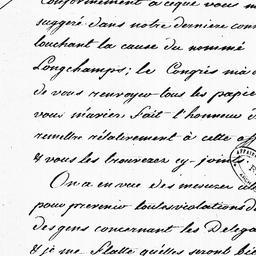 Conformément à ce que vous m
suggeré dans notre derniere con
touchant la cause du nommé
Longchamps; le Congrés m'a c
de vous renvoyer tous les papie
vous m'aviez fait l'honneur d
remettre rélativement à cette af
& vous les trouverez cy-joints.
On a en vue des mesures
pour prevenir toutes violations d
des gens concernant les Delega
& je me flatte qu'elles seront bie